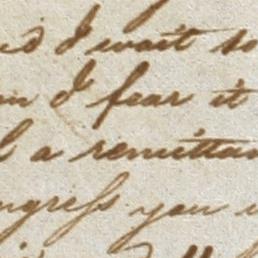 I wait to
I fear it
a remittan
ngress you